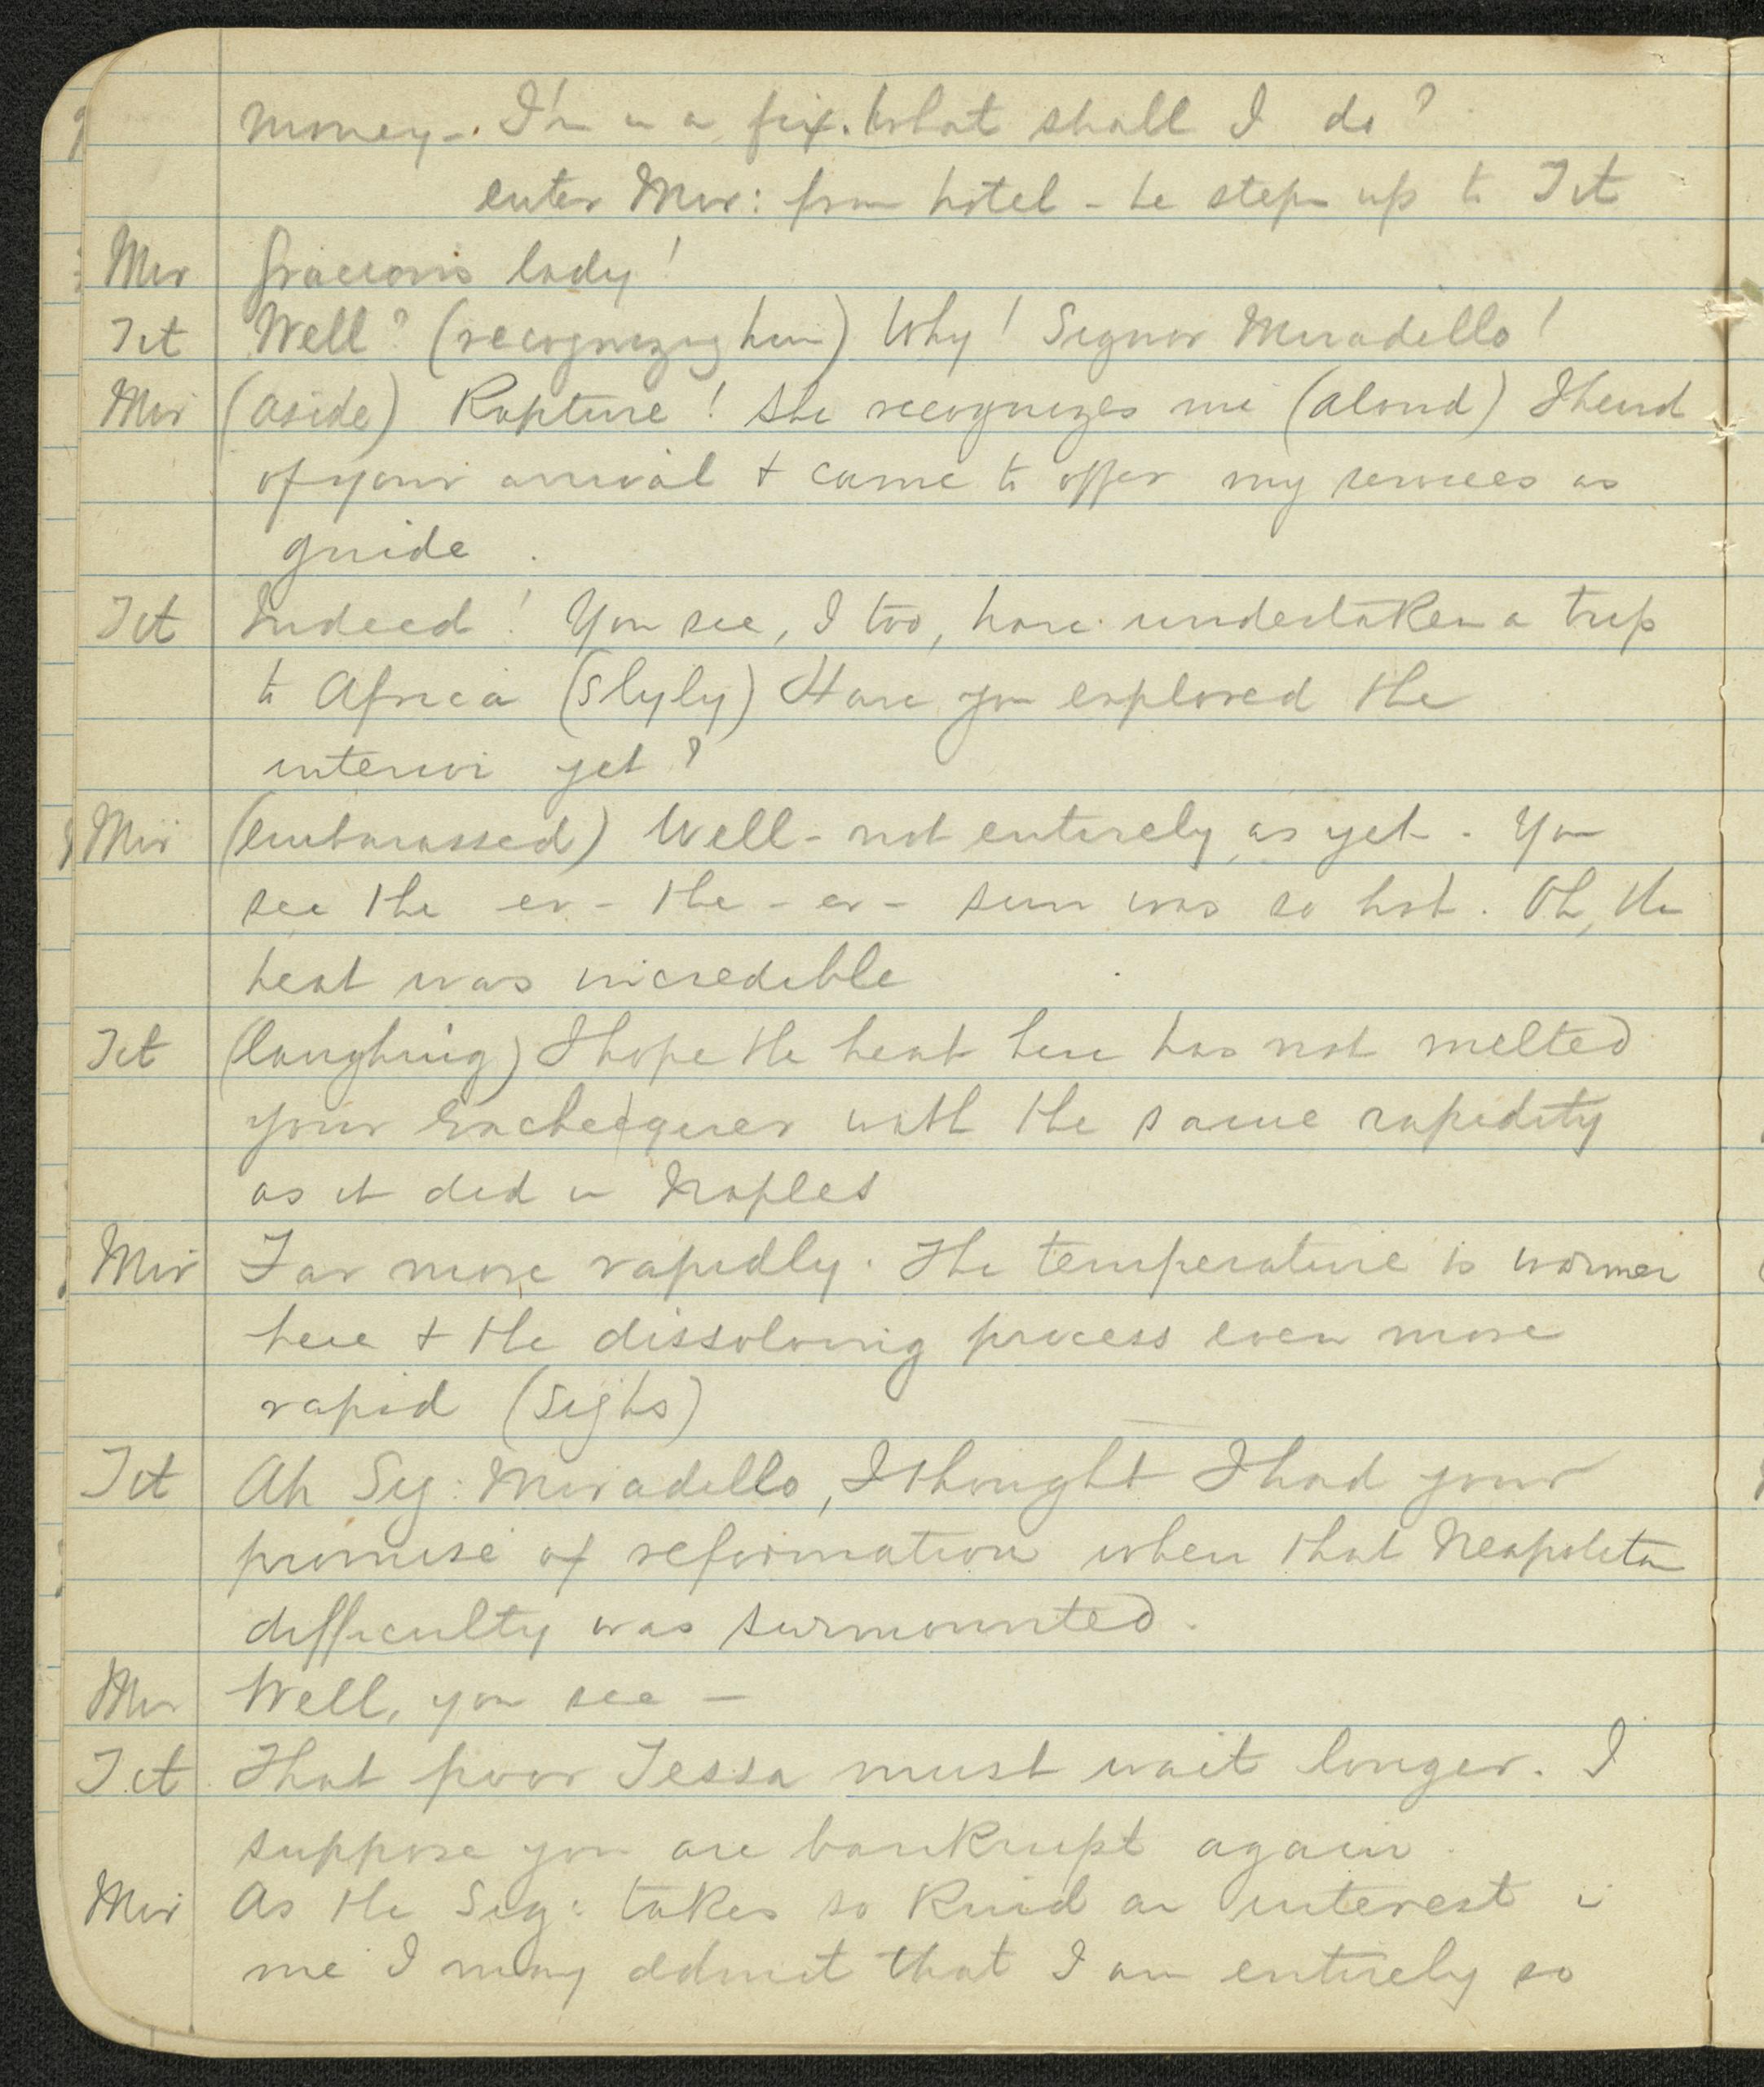 money-. I'm in a fix. What shall I do?
enter Mir: from hotel - he steps up to Tit
Mir Gracious lady!
Tit Well? (recognizing him) Why! Signor Miradillo!
Mir (aside) Rapture! She recognizes me (aloud) I heard
of your arrival + came to offer my services as
guide.
Tit Indeed! You see, I too, have undertaken a trip
to Africa (slyly) Have you explored the
interior yet?
Mir (embarassed) Well - not entirely, as yet. You
see the - er - the - er - sun was so hot. Oh, the
heat was incredible
Tit (laughing) I hope the heat here has not melted
your Exchequer with the same rapidity
as it did in Naples
Mir Far more rapidly. The temperature is warmer
here + the dissolving process even more
rapid (sighs)
Tit Ah Sig: Miradillo, I thought I had your
promise of reformation when that Neapolitan
difficulty was surmounted.
Mir Well, you see -
Tit That poor Tessa must wait longer. I
suppose you are bankrupt again.
Mir As the Sig: takes so kind an interest in
me I may admit that I am entirely so